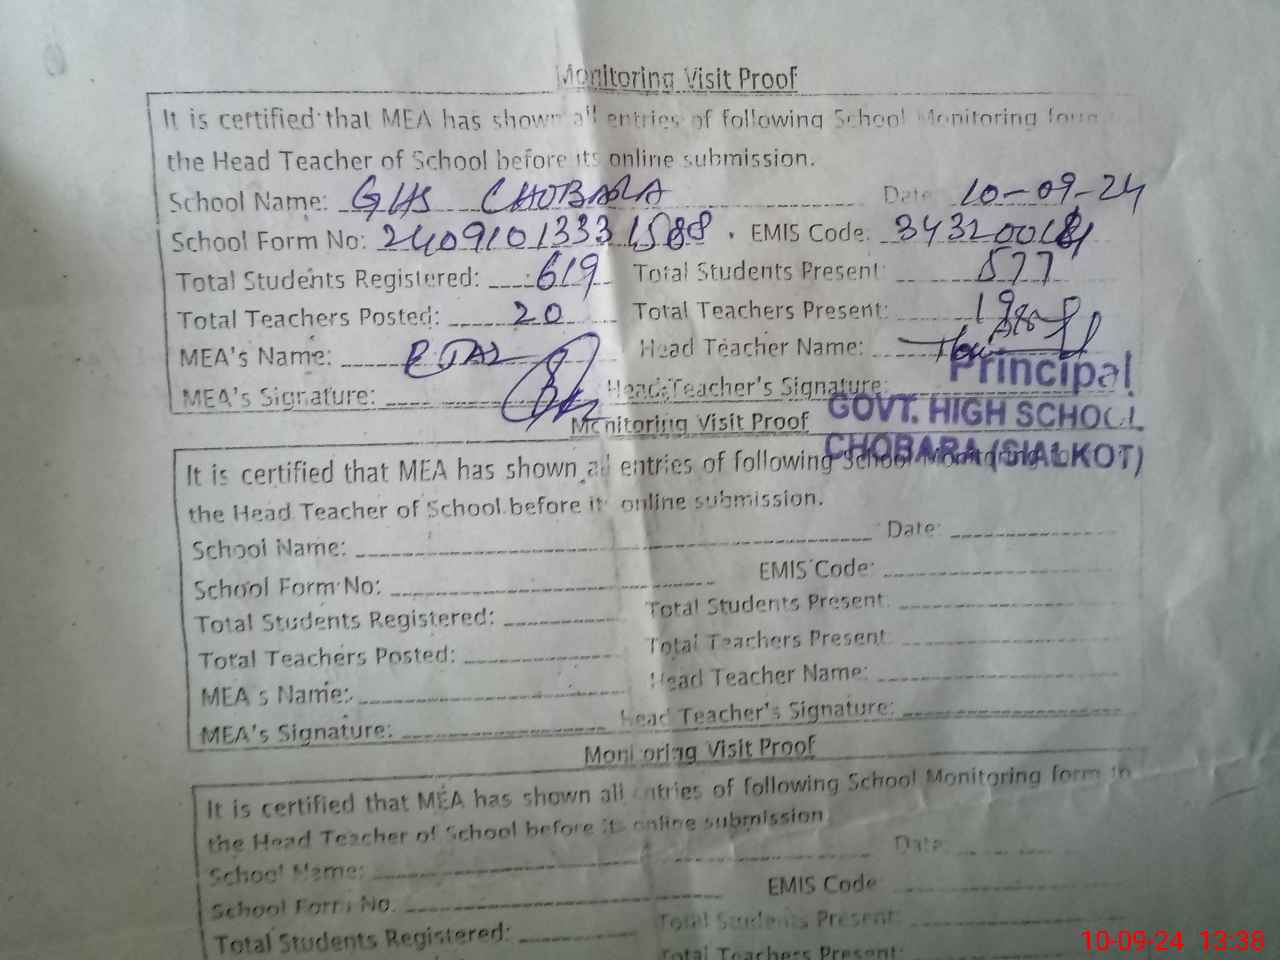 Monitoring Visit Proof
It is certified that MEA has shown all entries of following School Monitoring form
the Head Teacher of School before its online submission.
School Name: GHS CHOBARA Date 10-09-24
School Form No: 24091013331588 . EMIS Code: 343200
Total Students Registered: 619 Total Students Present: 577
Total Teachers Posted: 20 Total Teachers Present: 19
MEA's Name: Head Teacher Name:
MEA's Signature: Head Teacher's Signature:
Principal
GOVT. HIGH SCHOOL
CHOBARA (SIALKOT)
Monitoring Visit Proof
It is certified that MEA has shown all entries of following School Monitoring
the Head Teacher of School before its online submission.
School Name: Date:
School Form No: EMIS Code:
Total Students Registered: Total Students Present:
Total Teachers Posted: Total Teachers Present:
MEA's Name: Head Teacher Name:
MEA's Signature: Head Teacher's Signature:
Monitoring Visit Proof
It is certified that MEA has shown all entries of following School Monitoring form to
the Head Teacher of School before its online submission
School Name: Date
School Form No. EMIS Code
Total Students Registered: Total Students Present:
Total Teachers Present:
10-09-24 13:38